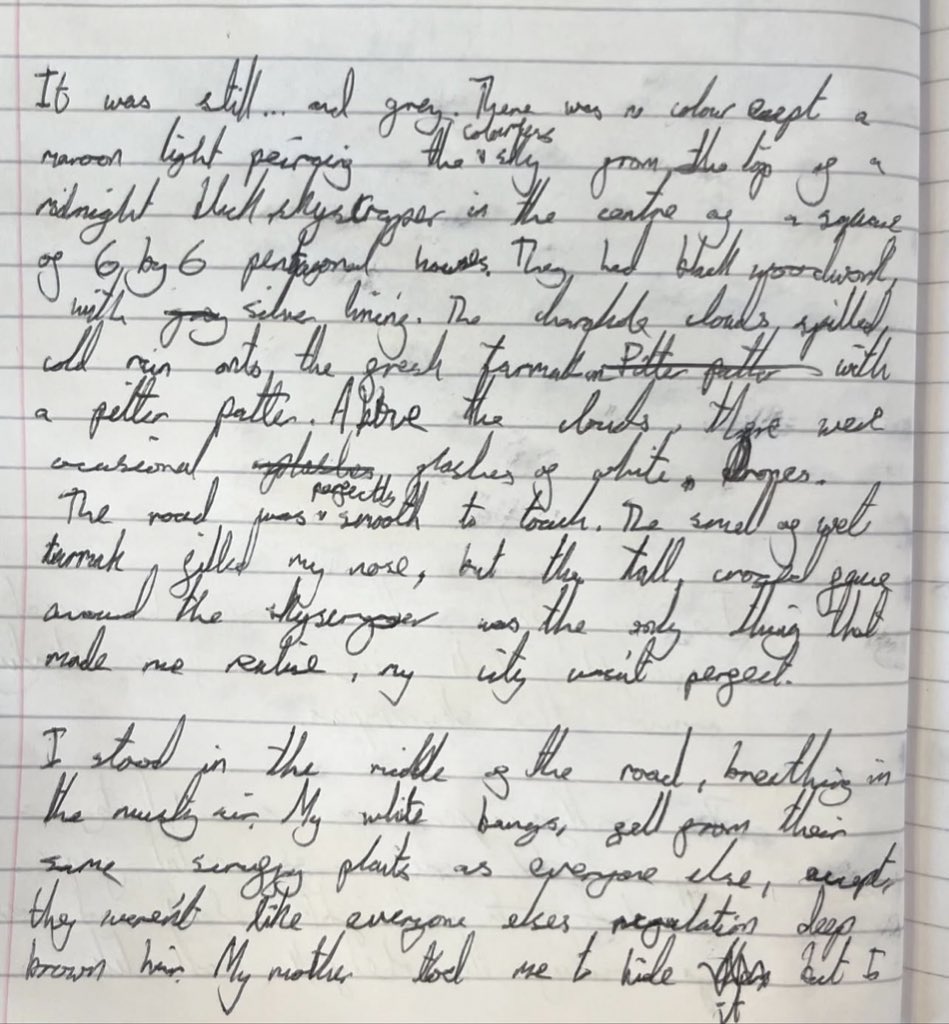 It was still... and grey. There was no colour exept a
maroon light peirging the colourless sky from the top of a
midnight black skyscraper in the centre of a square
of 6 by 6 pentagonal houses. They had black woodwork,
with grey silver lining. The clouds, spilled,
cold rain onto the fresh tarmak in Pitter patter with
a pitter patter. Above the clouds, there were
ocasional flashes of white,
The road was perfectly smooth to touch. The smell of wet
tarmak filled my nose, but the tall,
around the skyscraper was the only thing that
made me realise, my city wasn't perfect.
I stood in the middle of the road, breathing in
the musty air. My white bangs, fell from their
same scruffy plaits as everyone else, except,
they weren't like everyone elses regulation deep
brown hair. My mother me to hide but I
it